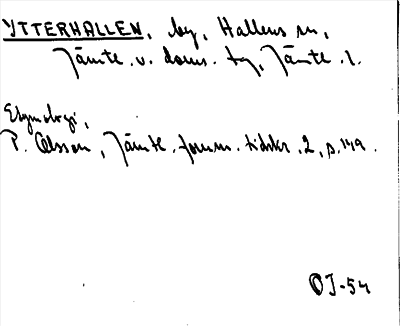 YTTERHALLEN, by, Hallens sn,
Jämte. v. doms. tg, Jämte. l.
Etymologi,
P. Olsson, Jämtl. fornm. tidskr. 2, s. 149.
OJ-54